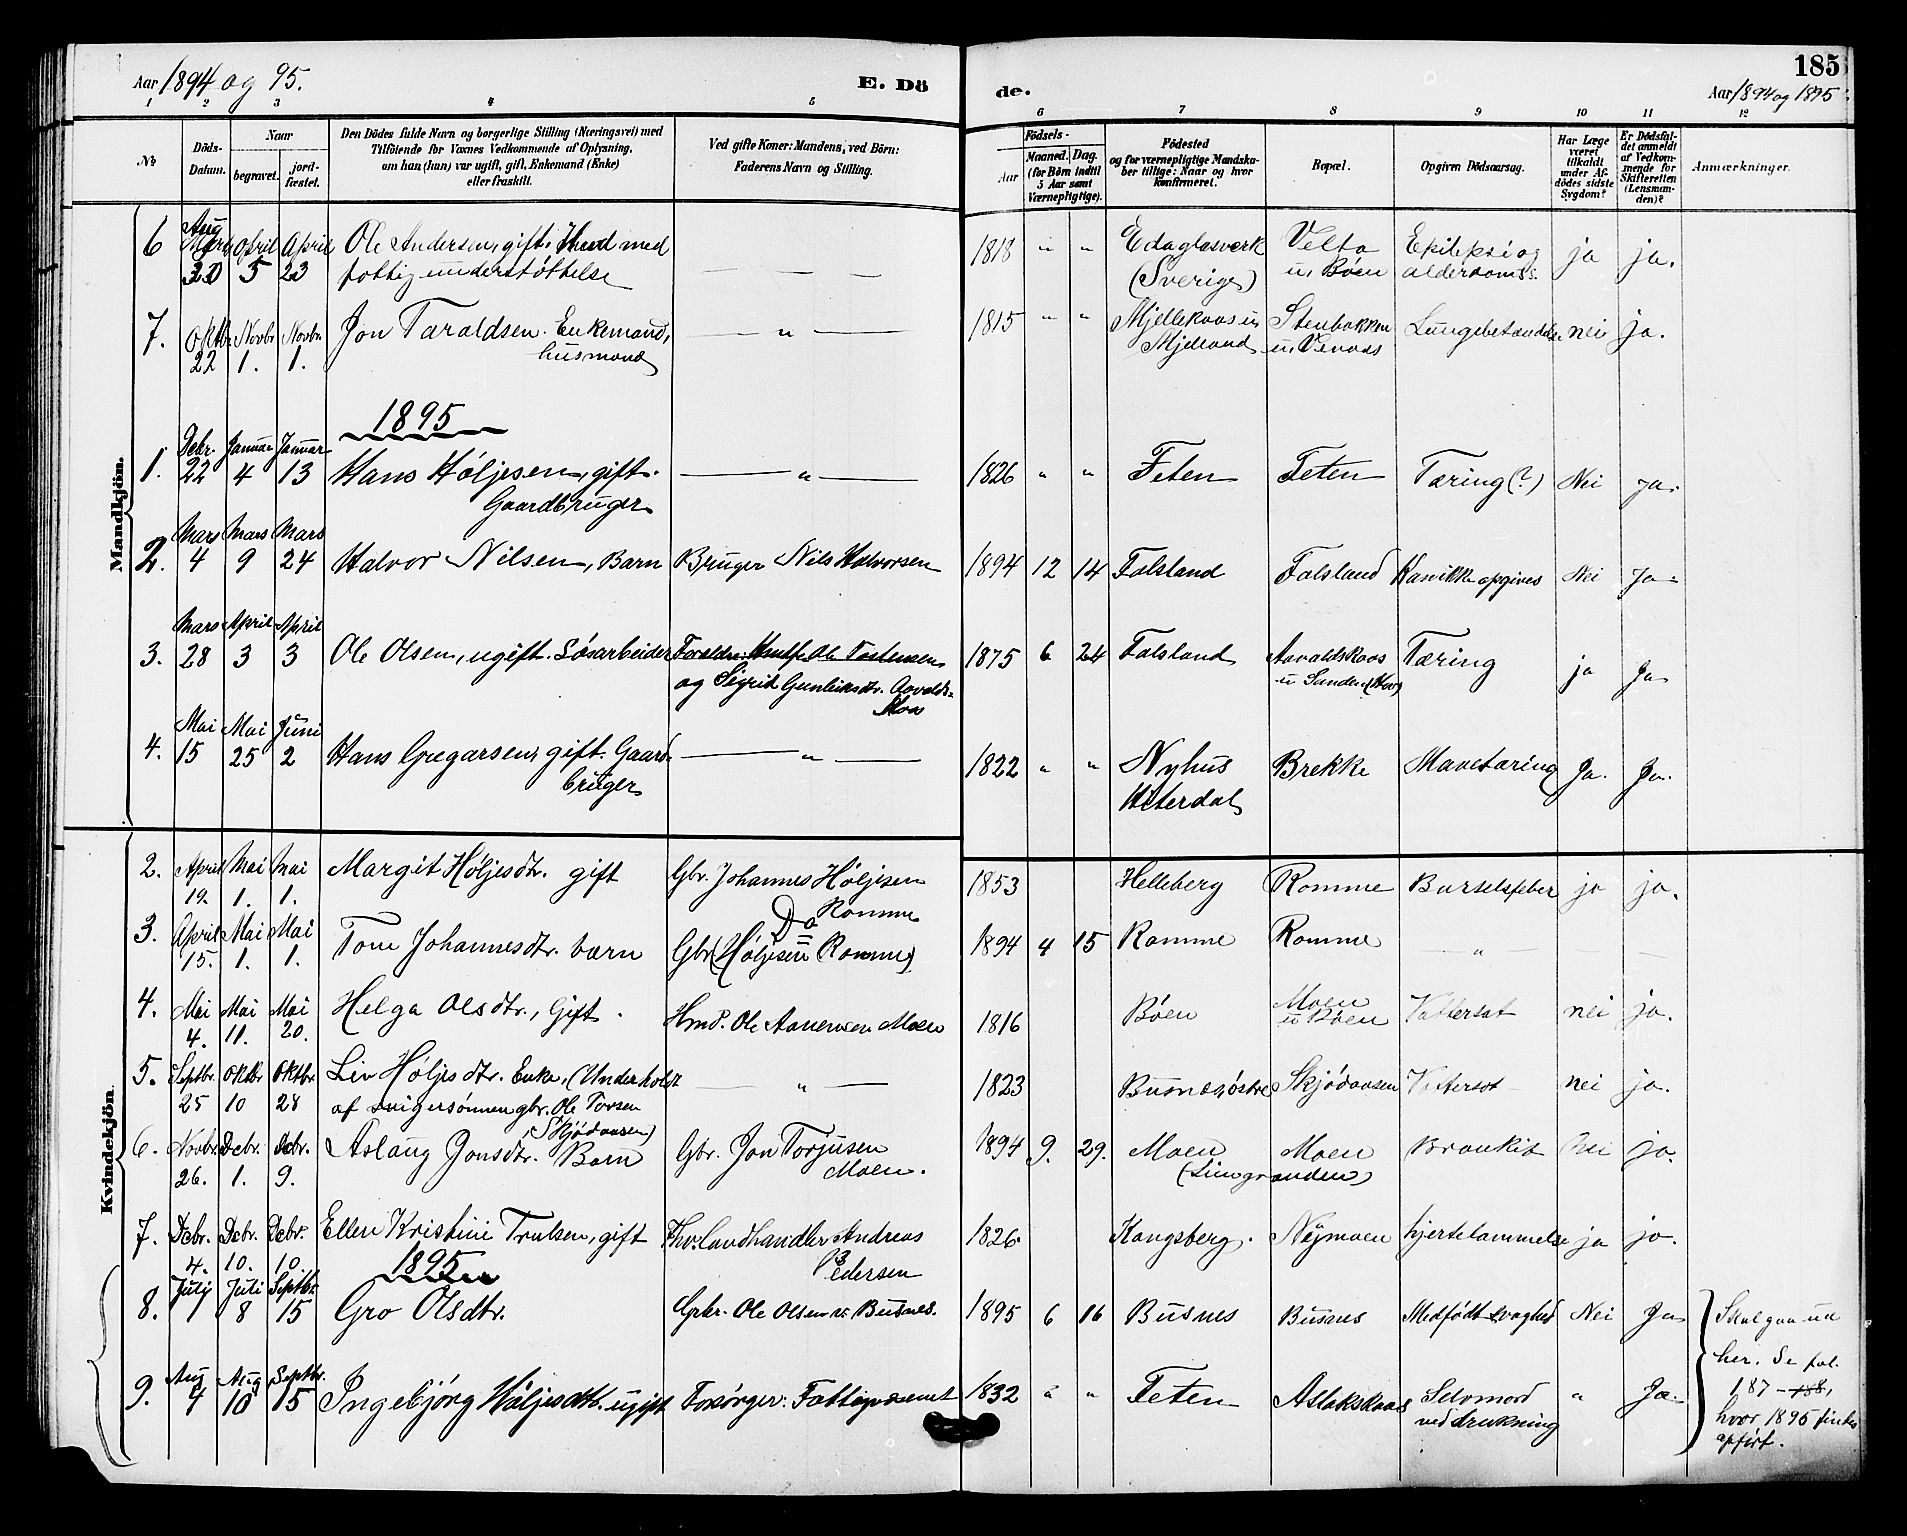 185
Aar 1894 og 95. E. Dö de. Aar 1894 og 1895
1 2 3 4 5 6 7 8 9 10 11 12
No
Döds-Datum.
Naar
begravet.
jordfæstet.
Den Dödes fulde Navn og borgerlige Stilling (Næringsvei) med
Tilföiende for Voxnes Vedkommende af Oplysning,
om han (hun) var ugift, gift, Enkemand (Enke)
eller fraskilt.
Ved gifte Koner: Mandens, ved Börn:
Faderens Navn og Stilling.
Födsels-
Aar
Maaned. Dag.
(for Börn indtil
5 Aar samt
Værnepligtige).
Födested
og for værnepligtige Mandska-
ber tillige: Naar og hvor
konfirmeret.
Bopæl.
Opgiven Dödsaarsag.
Har Læge
været
tilkaldt
under Af-
dödes sidste
Sygdom?
Er Dödsfal-
det anmeldt
af Vedkom-
mende for
Skifteretten
(Lensman-
den)?
Anmærkninger.
Mandkjön.
6 April 5 April 23 Ole Andersen, gift. med 1818 " " Edaglasverk Epilepsi og ja ja.
fattigunderstøttelse — — — (Sverige) u. Bøen alderdoms
7. Oktbr 22 Novbr 1. Novbr 1. Jon Taraldsen. Enkemand, — " — 1815 " " Stenbakken Lungebetændelse nei ja.
husmand
1895
1. Debr. 22 Januar 4 Januar 13 Hans Høljesen, gift. — " — 1826 " " Feten Feten Tæring (?) Nei ja.
Gaardbruger
2. Mars 4 Mars 9 Mars 24 Halvor Nilsen, Barn Bruger Nils Halvorsen 1894 12 14 Falsland Falsland Kan ikke opgives Nei Ja
3. Mars 28 April 3 April 3 Ole Olsen, ugift. Løsarbeider Forældre: Ole 1875 6 24 Falsland Tæring ja Ja
og Sigrid Gunleiksdtr.
4. Mai 15 Mai 25 Juni 2 Hans Gregarsen, gift. Gaard- — " — 1822 " " Nyhus Brekke Mavetæring Ja. Ja.
bruger Hiterdal
Kvindekjön.
2. April 19. Mai 1. Mai 1. Margit Høljesdtr. gift Gbr. Johannes Høljesen 1853 Helleberg Romme Barselsfeber ja ja.
Romme
3. April 15. Mai 1. Mai 1. Tone Johannesdtr. barn Do 1894 4 15 Romme Romme " —
Gbr (Høljesen Romme)
4. Mai 4. Mai 11. Mai 20. Helga Olsdtr., Gift. Hmd. Ole Aanensen Moen 1816 Bøen Moen u Bøen Vattersot nei ja.
5. Septbr. 25 Oktbr 10 Oktbr. 28 Liv Høljesdtr. Enke, (Underholdt — " — 1823 Skjødaasen Vattersot nei ja.
af svigersønnen gbr. Ole Torsen
Skjødaasen)
6. Novbr. 26. Debr. 1. Debr. 9. Aslaug Jonsdtr. Barn Gbr. Jon Torjusen 1894 9. 29. Moen Moen Bronkit Nei ja.
Moen.
7. Debr. 4. Debr. 10. Debr. 10. Ellen Kristine Trulsen, gift Fhv. landhandler Andreas 1826. Kongsberg. Nymoen hjertelammelse ja ja.
Pedersen
1895
8. July 1 Juli 8 Septbr 15 Gro Olsdtr. Grbr. Ole Olsen Busnes. 1895 6 16 Busnes Busnes Medfødt svaghed Nei Ja
9. Aug 4 Aug 10 Septbr. 15 Ingebjørg Høljesdtr. ugift Forsørger: Fattigvæsenet 1832 " " Feten Aslakskaas Selvmord " Ja.
ved drukning
Skal gaa ud
her. Se fol.
187 - 188,
hvor 1895 findes
opført.